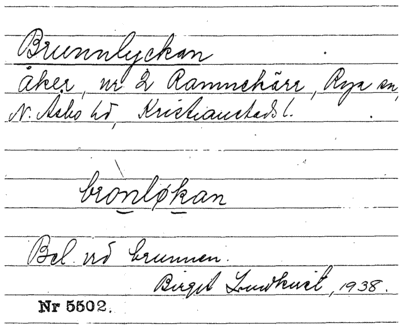 Brunnlyckan
åker, nr 2 Ramnekärr, Röja sn,
N. Åsbo hd, Kristianstads l.
brònløkan
Bel. vid brunnen.
Birgit Lundkvist, 1938.
Nr 5502.